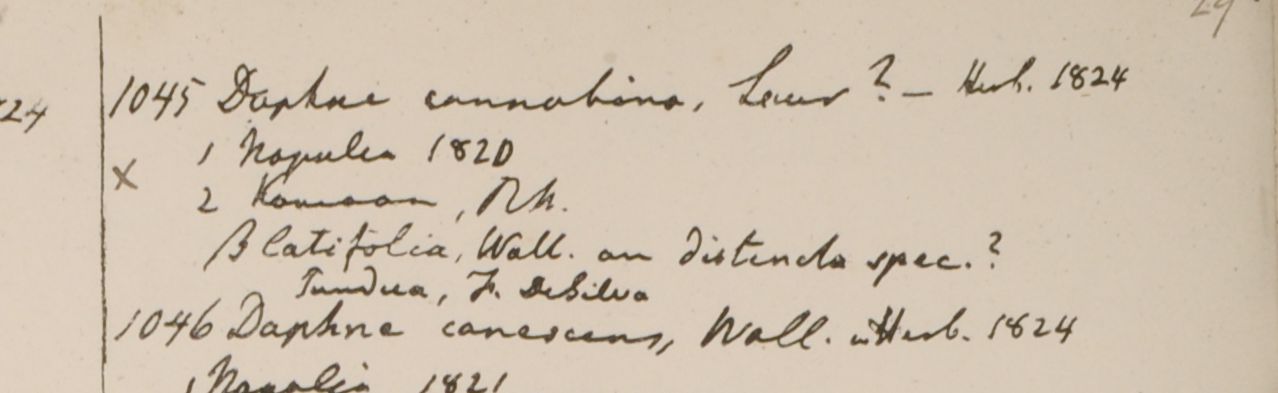 29
24
1045 Daphne cannabina, Lour ? — Herb. 1824
1 Napalia 1820
x
2 Kamaon, R. Bl.
β latifolia, Wall. an distincta spec. ?
Tundua, F. De Silva
1046 Daphne canescens, Wall. in Herb. 1824
1 Napalia 1821